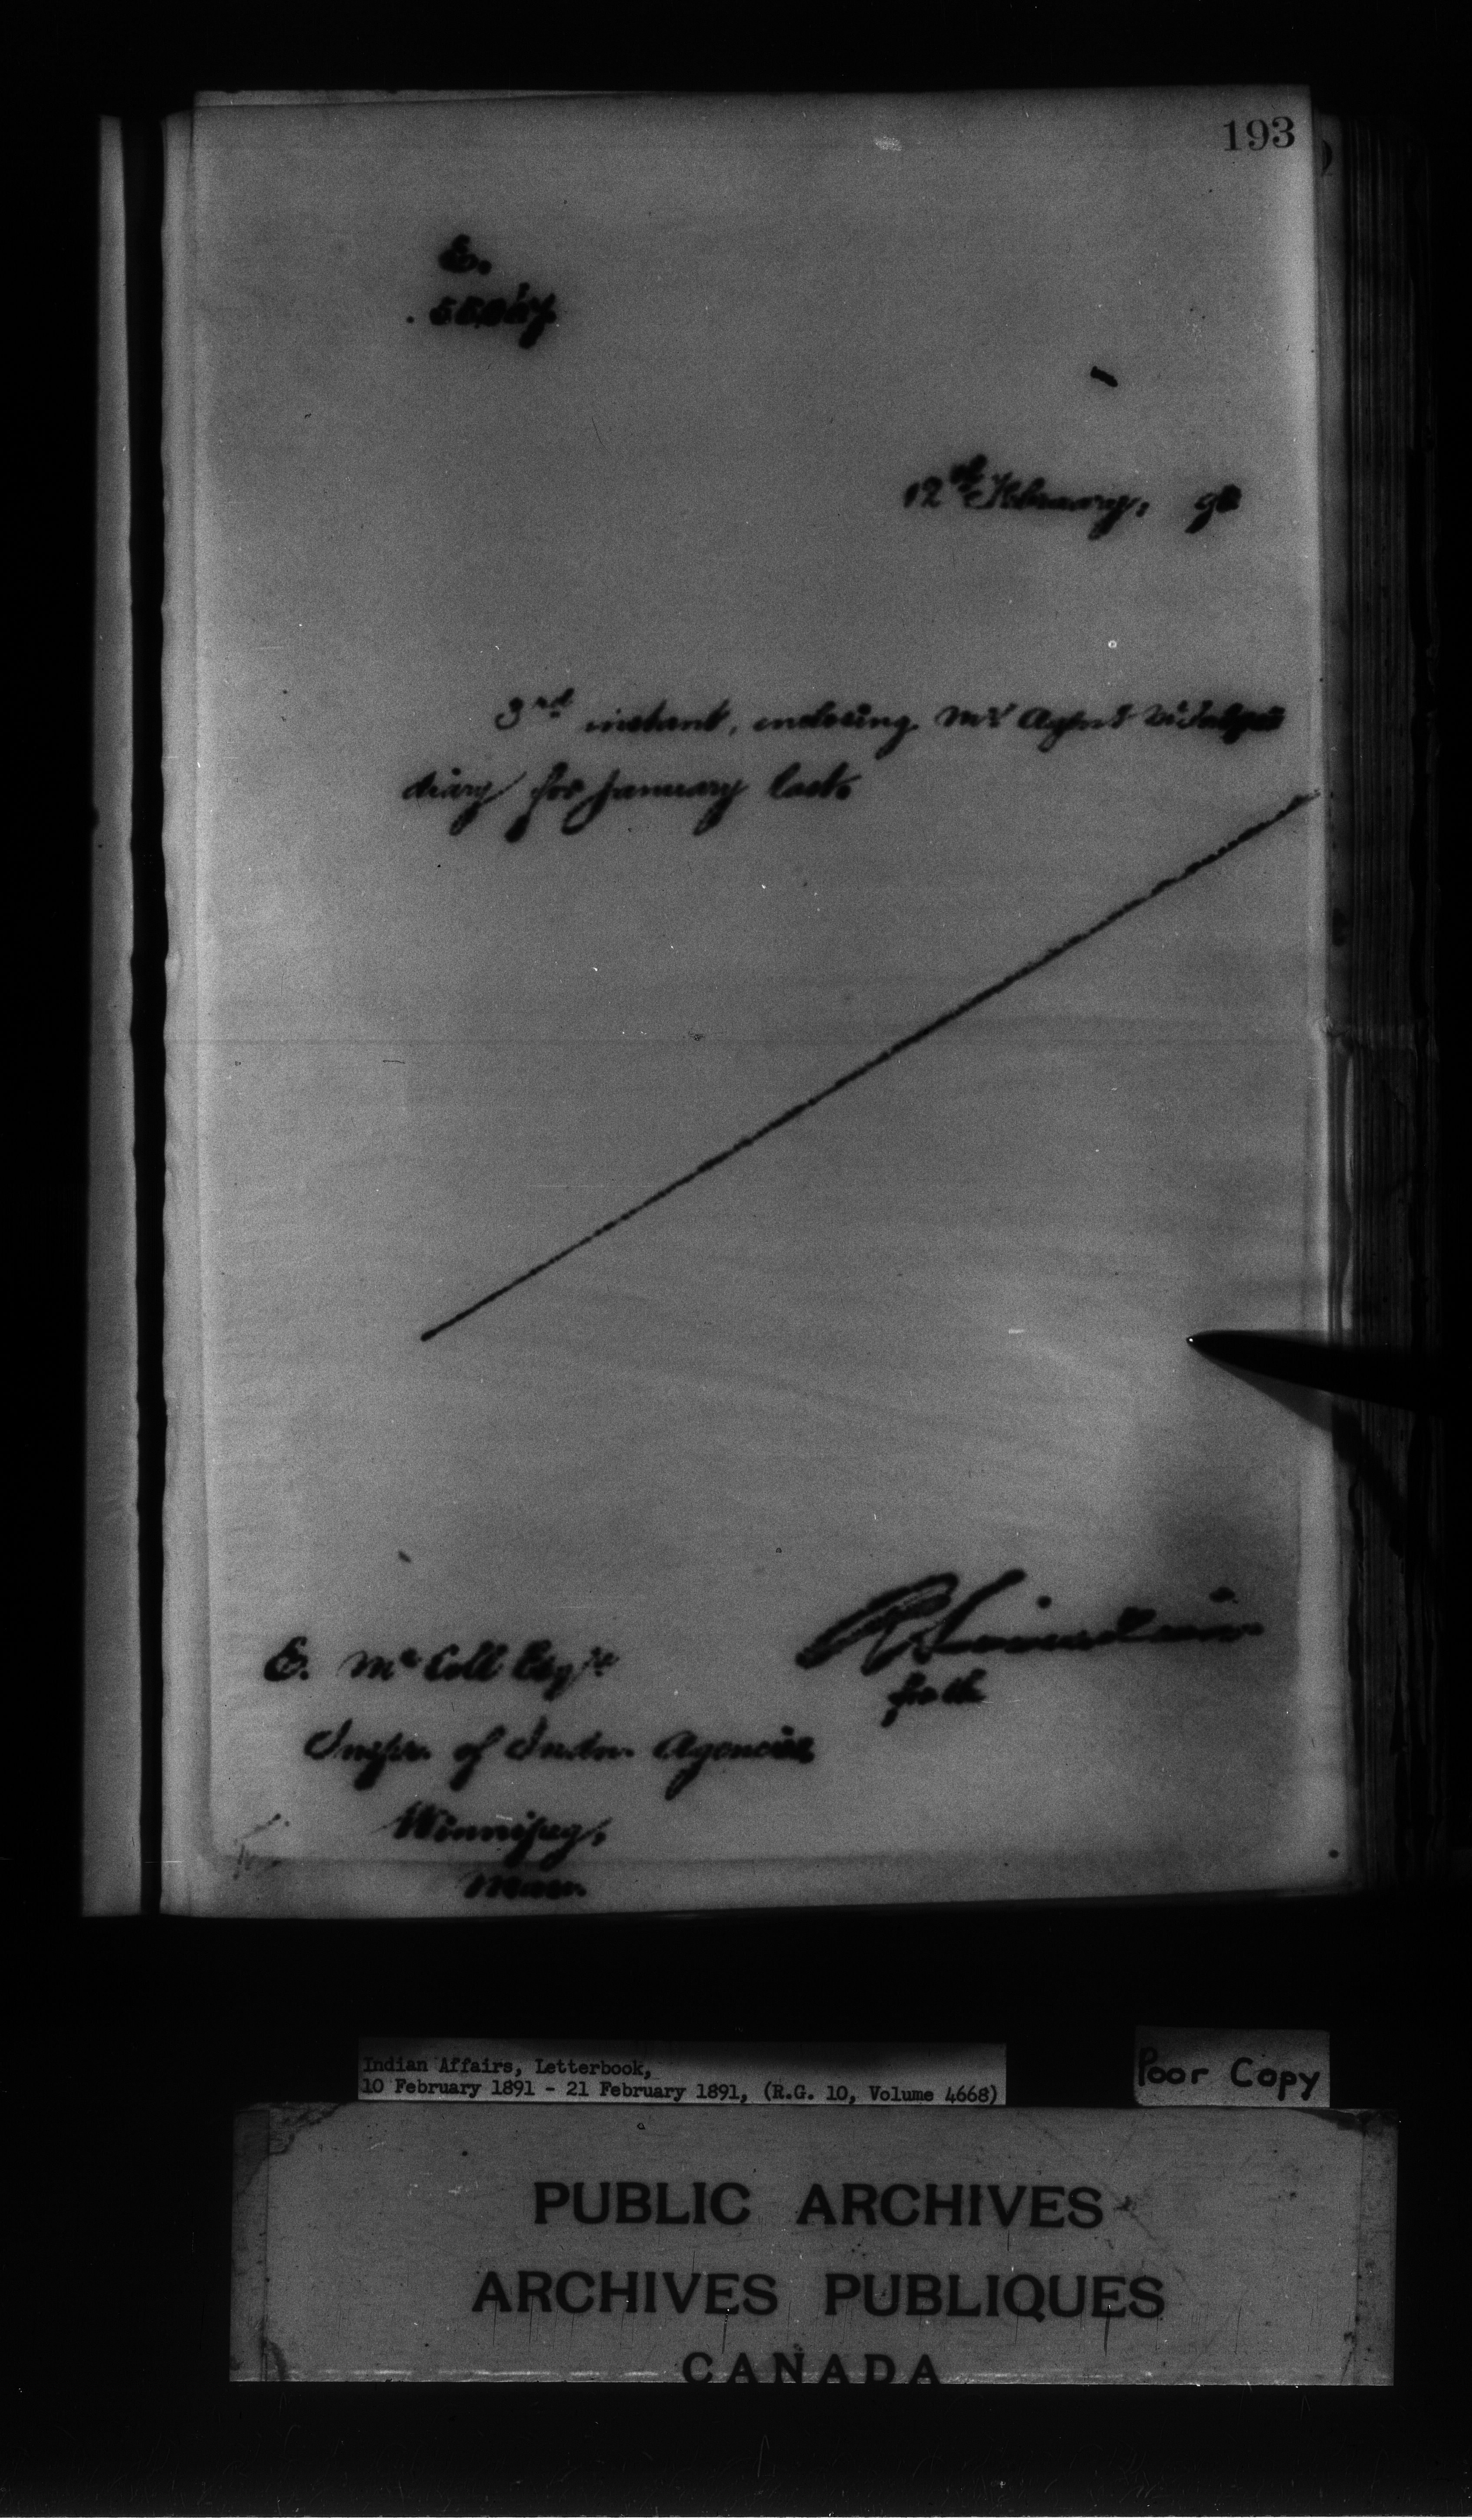 193
E.
12th February, 91
3rd instant, enclosing Mr Agent
diary for January last.
E. McColl Esqre
Inspr. of Indn. Agencies
Winnipeg,
Man.
Indian Affairs, Letterbook,
10 February 1891 - 21 February 1891, (R.G. 10, Volume 4668)
Poor Copy
PUBLIC ARCHIVES
ARCHIVES PUBLIQUES
CANADA